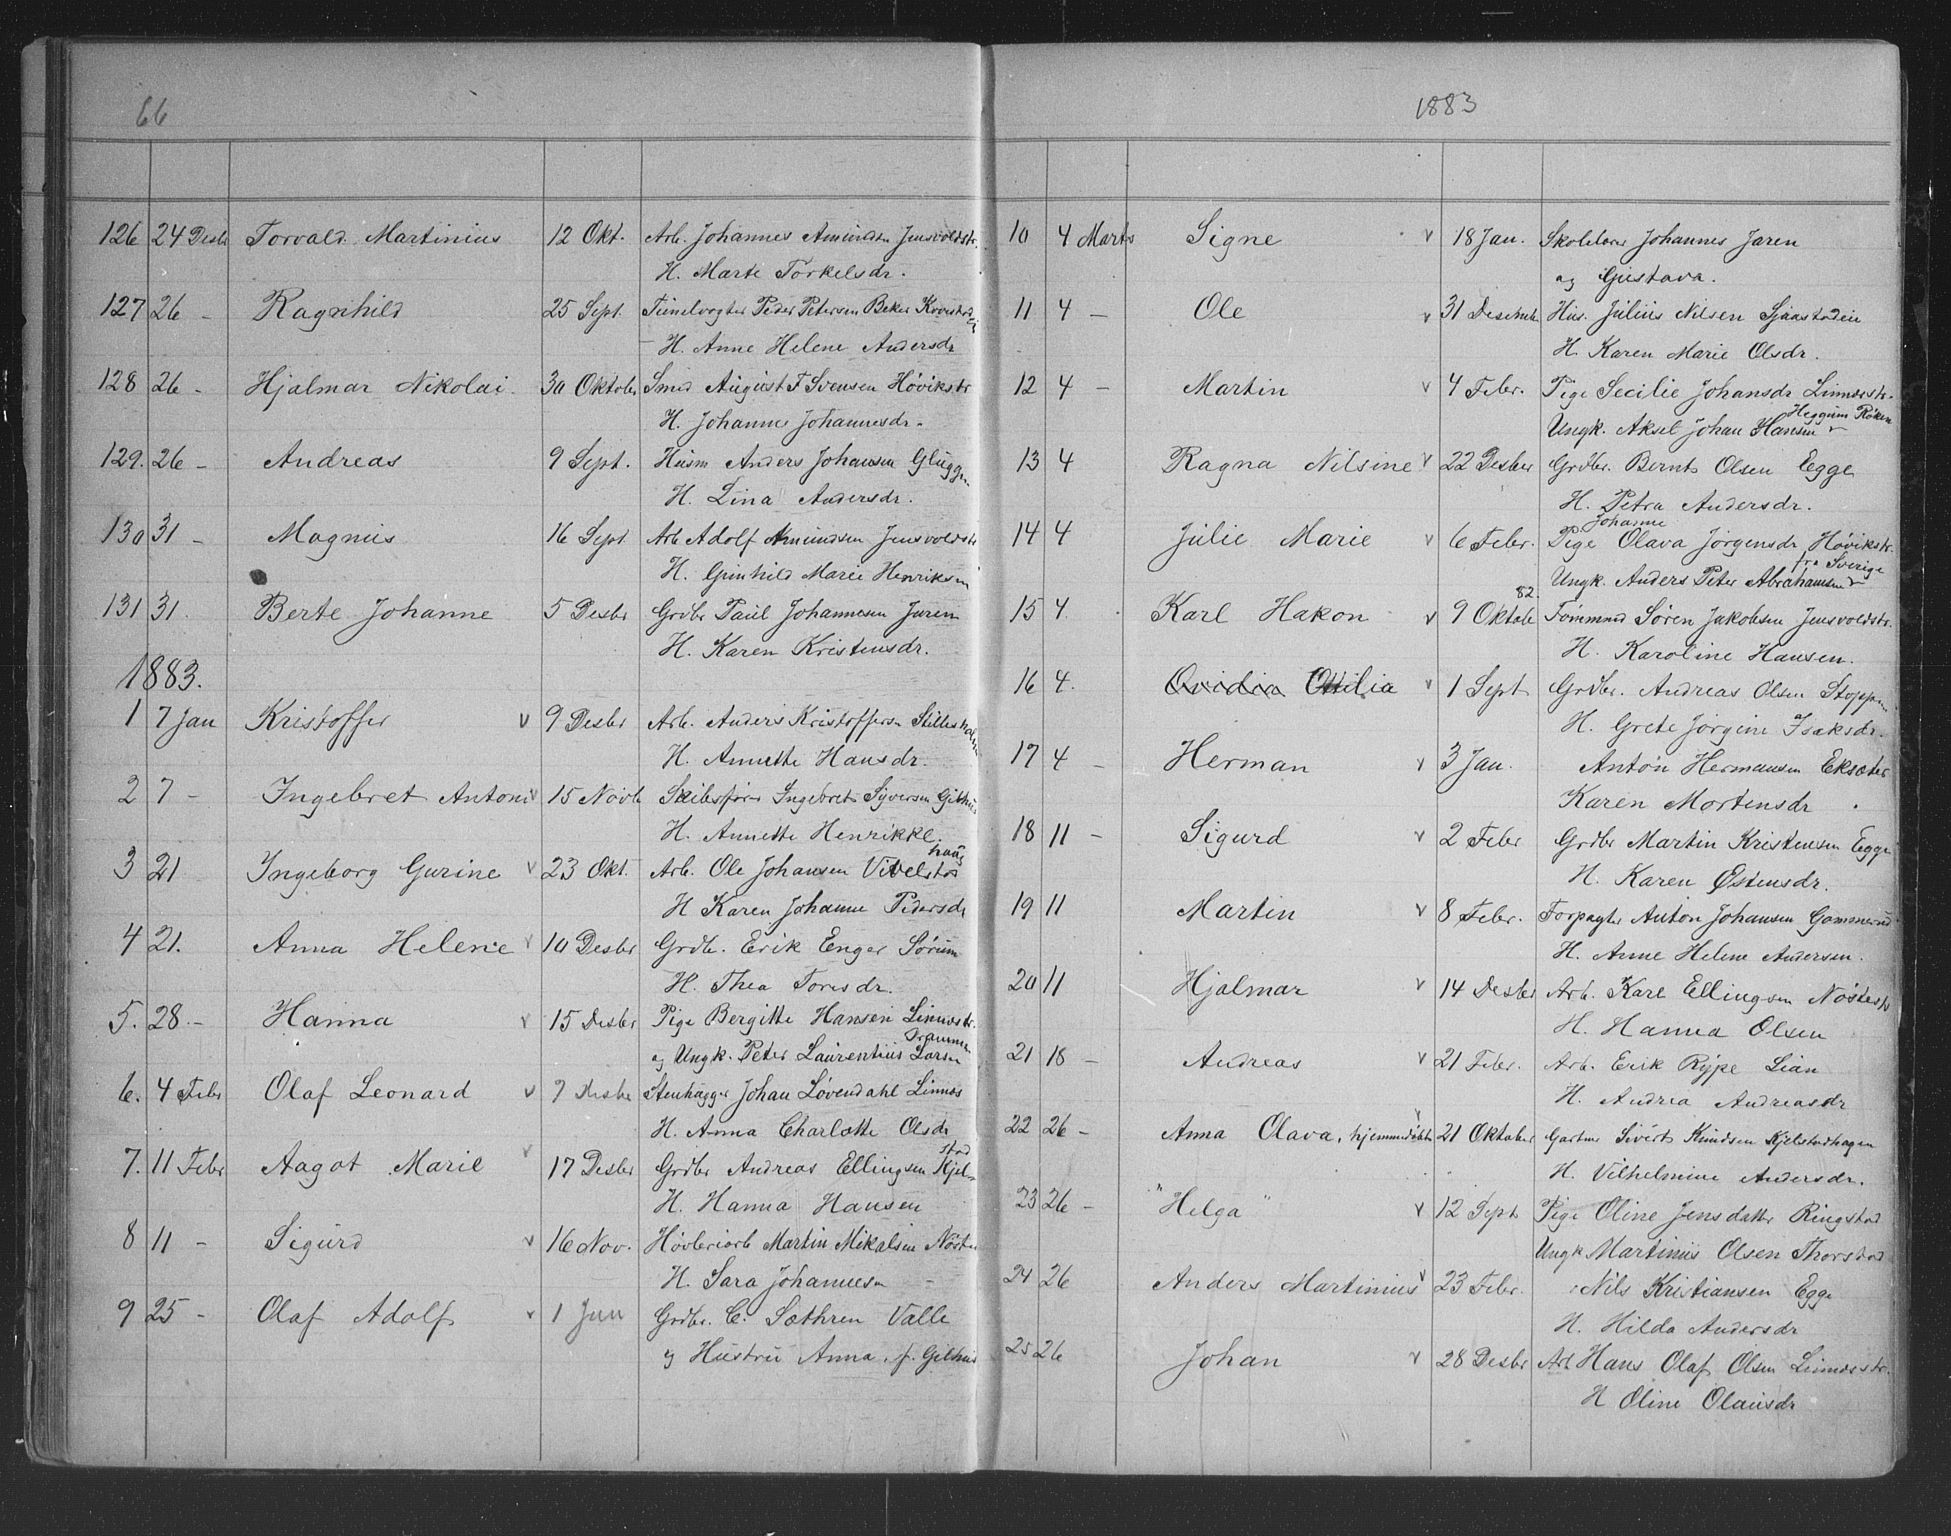 66
126 24 Desbr Torvald Martinius 12 Okt. Arb. Johannes Amundsen Jensvoldstr.
H. Marte Torkelsdr.
127 26 - Ragnhild 25 Sept. Tunelvogter Peder Petersen Beker
H. Anne Helene Andersdr
128 26 - Hjalmar Nikolai 30 Oktober Smed August F Svensen Høvikstr
H. Johanne Johannesdr.
129. 26 - Andreas 9 Sept. Husm Anders Johansen Gluggen
H. Lina Andersdr.
130 31 - Magnus 16 Sept Arb Adolf Amundsen Jensvoldstr
H. Gunhild Marie Henriksen
131 31. Berte Johanne 5 Desbr Grdbr Paul Johannesen Jaren
H. Karen Kristensdr.
1883.
1 7 Jan Kristoffer v 9 Desbr Arb. Anders Kristoffersn
H. Annette Hansdr.
2 7 - Ingebret Antoni v 15 Novb Skibsfører Ingebret Syversen Gilhus
H. Annette Henrikke.
3 21 Ingeborg Gurine v 23 Okt. Arb. Ole Johansen
H Karen Johanne Pedersdr
4 21. Anna Helene v 10 Desbr Grdb. Erik Enger Sørum
H. Thea Toresdr.
5. 28. - Hanna v 15 Desbr Pige Bergitte Hansen Linnesstr.
Drammen
og Ungk. Peter Laurentius Larsen
6. 4 Febr Olaf Leonard v 7 Desbr Stenhugger Johan Løvendahl Linnes
H. Anna Charlotte Olsdr
7. 11 Febr Aagot Marie v 17 Desbr Grdbr Andreas Ellingsen Kjelstad
H. Hanna Hansen
8 11 - Sigurd v 16 Nov. Høvleriarb Martin Mikalsen Nøste
H. Sara Johannesen
9 25 - Olaf Adolf v 1 Jan Grdbr. C. Sæthren Valle
og Hustru Anna, f. Gilhus
1883
10 4 Marts Signe v 18 Jan. Skolelærer Johannes Jaren
og Gustava.
11 4 - Ole v 31 Desembr Hus. Julius Nilsen Sjaastadeie
H. Karen Marie Olsdr.
12 4 - Martin v 4 Febr. Pige Secilie Johansdr Linnesstr.
Heggum Røken
Ungk. Aksel Johan Hansen
13 4 Ragna Nilsine v 22 Desber Grdbr. Bernt Olsen Egge
H. Petra Andersdr.
Johanne
14 4 Julie Marie v 6 Febr. Pige Olava Jørgensdr Høvikstr.
fra Sverige
Ungk. Anders Peter Abrahamsen
82.
15 4. Karl Hakon v 9 Oktobr Tømmmd Søren Jakobsen Jensvoldstr.
H. Karoline Hansen.
16 4. Ovidia Ottilia v 1 Sept Grdbr. Andreas Olsen Stoppen
H. Grete Jørgine Isaksdr.
17 4 - Herman v 3 Jan. Anton Hermansen Eksæter
Karen Mortensdr
18 11 - Sigurd v 2 Febr Grdbr Martin Kristensen Egge
H. Karen Østensdr.
19 11 Martin v 8 Febr. Forpagter Anton Johansen Gommerud
H. Anne Helene Andersen.
20 11 Hjalmar v 14 Desbr Arb. Karl Ellingsen Nøstestr
H. Hanna Olsen
21 18 - Andreas v 21 Febr. Arb. Erik Rype Lian
H. Andrea Andreasdr
22 26 - Anna Olava, hjemmedøbt v 21 Oktober Gartner Sivert Knudsen Kjelstadhagen
H. Vilhelmine Andersdr.
23 26 - "Helga" v 12 Sept Pige Oline Jensdatter Ringstad
Ungk Martinius Olsen Thorstad
24 26 Anders Martinius v 23 Febr. Nils Kristiansen Egge
H. Hilda Andersdr
25 26 Johan v 28 Desbr Arb Hans Olaf Olsen Linnesstr.
H Oline Olausdr